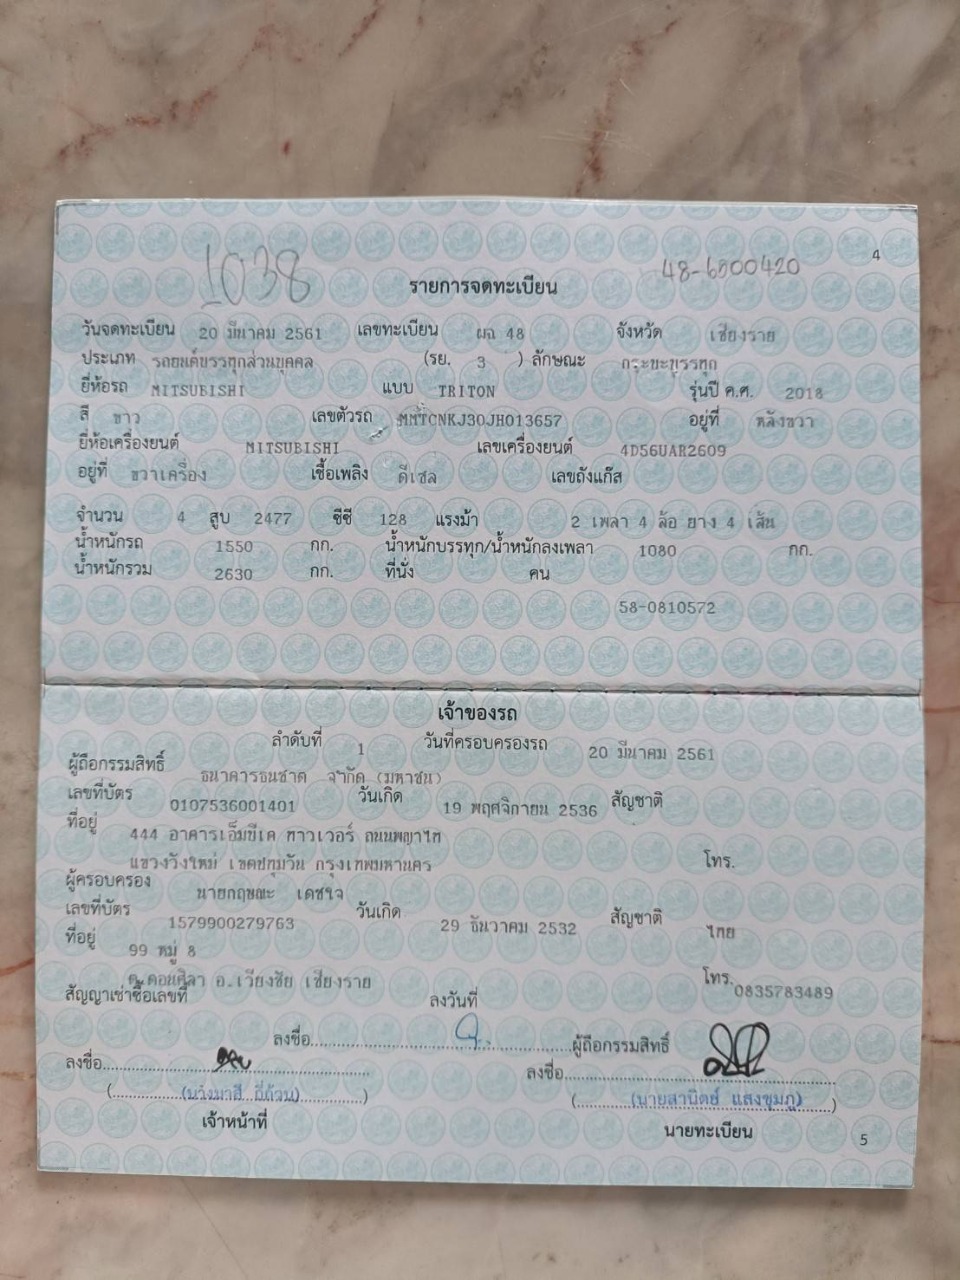 4
1038
48-6500420
รายการจดทะเบียน
วันจดทะเบียน 20 มีนาคม 2561 เลขทะเบียน ผฉ 48 จังหวัด เชียงราย
ประเภท รถยนต์บรรทุกส่วนบุคคล (รย. 3 ) ลักษณะ กระบะบรรทุก
ยี่ห้อรถ MITSUBISHI แบบ TRITON รุ่นปี ค.ศ. 2018
สี ขาว เลขตัวรถ MMTCNKJ30JH013657 อยู่ที่ หลังขวา
ยี่ห้อเครื่องยนต์ MITSUBISHI เลขเครื่องยนต์ 4D56UAR2609
อยู่ที่ ขวาเครื่อง เชื้อเพลิง ดีเซล เลขถังแก๊ส
จำนวน 4 สูบ 2477 ซีซี 128 แรงม้า 2 เพลา 4 ล้อ ยาง 4 เส้น
น้ำหนักรถ 1550 กก. น้ำหนักบรรทุก/น้ำหนักลงเพลา 1080 กก.
น้ำหนักรวม 2630 กก. ที่นั่ง คน
58-0810572
เจ้าของรถ
ลำดับที่ 1 วันที่ครอบครองรถ 20 มีนาคม 2561
ผู้ถือกรรมสิทธิ์ ธนาคารธนชาต จำกัด (มหาชน)
เลขที่บัตร 0107536001401 วันเกิด 19 พฤศจิกายน 2536 สัญชาติ
ที่อยู่ 444 อาคารเอ็มบีเค ทาวเวอร์ ถนนพญาไท
แขวงวังใหม่ เขตปทุมวัน กรุงเทพมหานคร โทร.
ผู้ครอบครอง นายกฤษณะ เดชใจ
เลขที่บัตร 1579900279763 วันเกิด 29 ธันวาคม 2532 สัญชาติ ไทย
ที่อยู่ 99 หมู่ 8
ต.ดอนศิลา อ.เวียงชัย เชียงราย โทร. 0835783489
สัญญาเช่าซื้อเลขที่ ลงวันที่
ลงชื่อ ผู้ถือกรรมสิทธิ์
ลงชื่อ ลงชื่อ
(นายสานิตย์ แสงชมภู)
เจ้าหน้าที่ นายทะเบียน
5